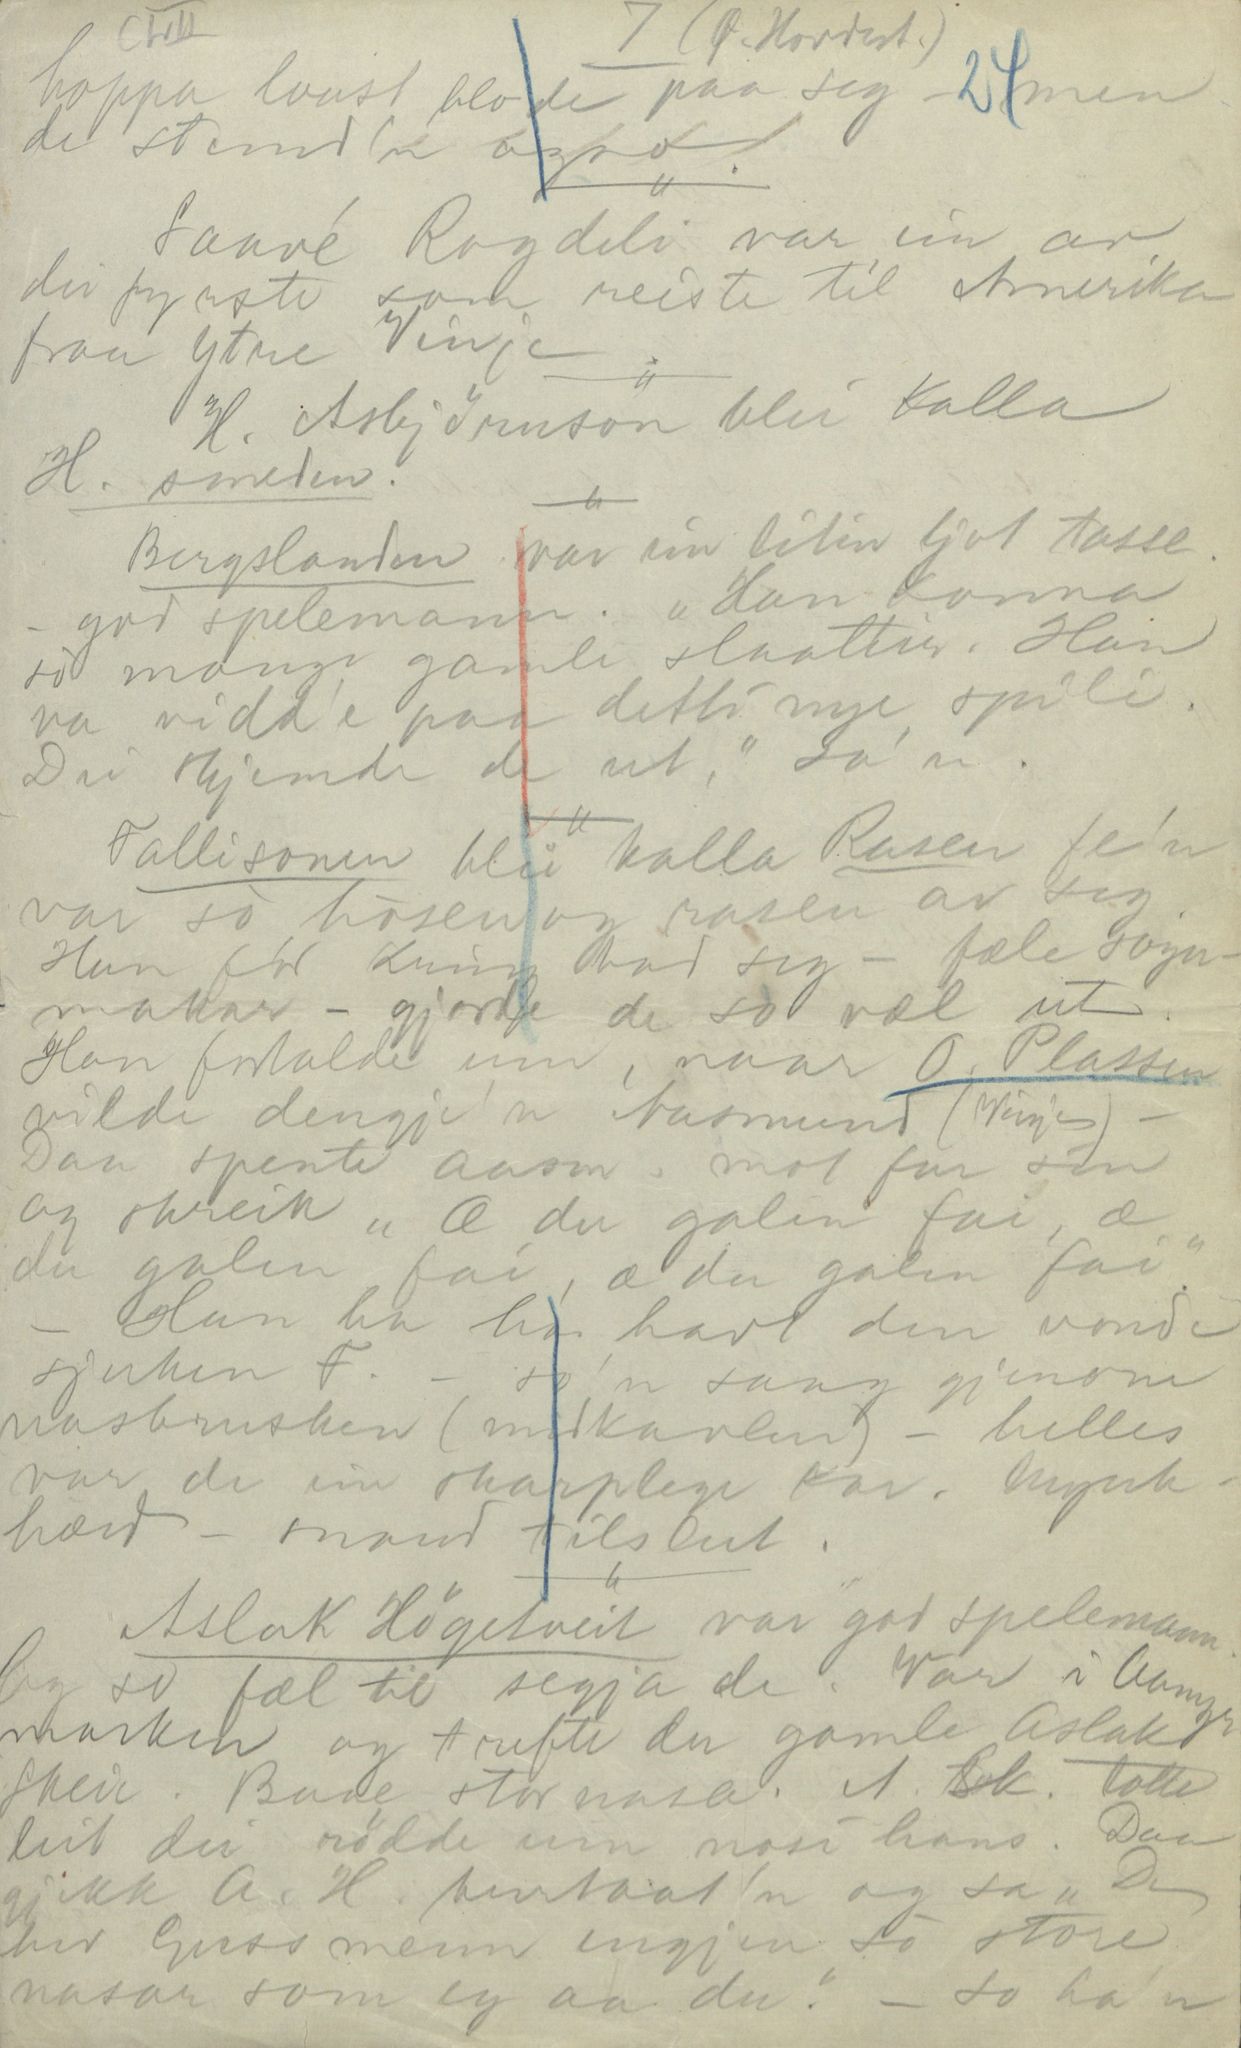 7 (Ø. Nordest.)
hoppa laust blode paa seg - 24 men
de stend'n
Saavé Rogdeli var ein av
dei fyrste som reiste til Amerika
fraa Ytre Vinje.
H. Asbjörnson blei kalla
H. smeden.
Bergslanden var ein liten ljot tasse.
- god spelemann. „Han konna
so mange gamle slaattar. Han
va vidd'e paa detti nye spili.
Dei skjemde de ut," sa'n.
Fallisonen blei kalla Rasen fe'n
var so hosen og rasen av seg.
Han fór kring bad seg - fæle sogu-
makar - gjorde de so væl ut.
Han fortalde um, naar O. Plassen
vilde dengje'n Aasmund (Vinje) -
Daa spente aasm. mot far sin
og skreik „Æ du galen fai, æ
du galen fai, æ du galen fai"
- Han ha havt den vonde
sjuken F. - so'n saag gjenom
nasbrusken (midkavlen) - helles
var de ein skarplege kar. Mjuk-
hærd - snaud tilslut.
Aslak Högetveit var god spelemann.
Og so fæl til segja de. Var i Vanger
marken og trefte den gamle Aslak
Skeie. Baae stor nasa. A. Sk. totte
leit dei rödde um nasi hans. Daa
gjekk A. H. burtaat'n og sa „De
her Guss menn ingjen so store
nasar som eg aa du." - So ha'n